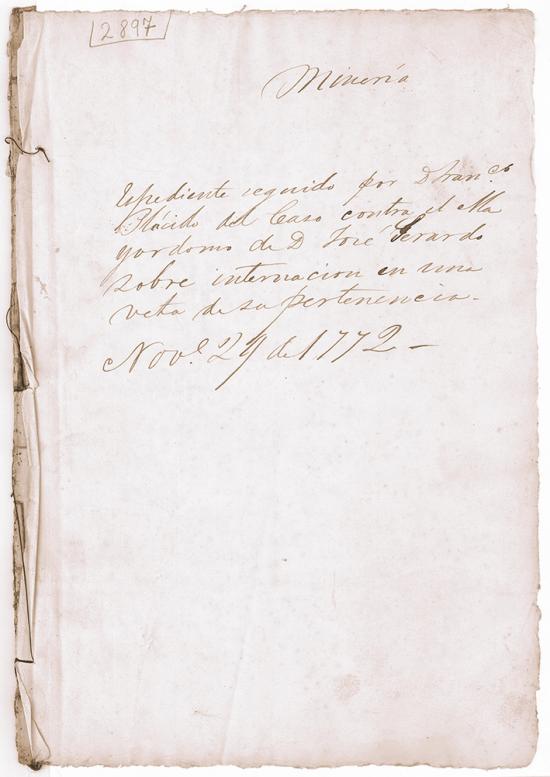 2897
Minería
Espediente seguido por D Fran.co
Plácido del Caso contra el Ma
yordomo de D José Gerardo
sobre internacion en una
veta de su pertenencia.
Nov.e 29 de 1772 —